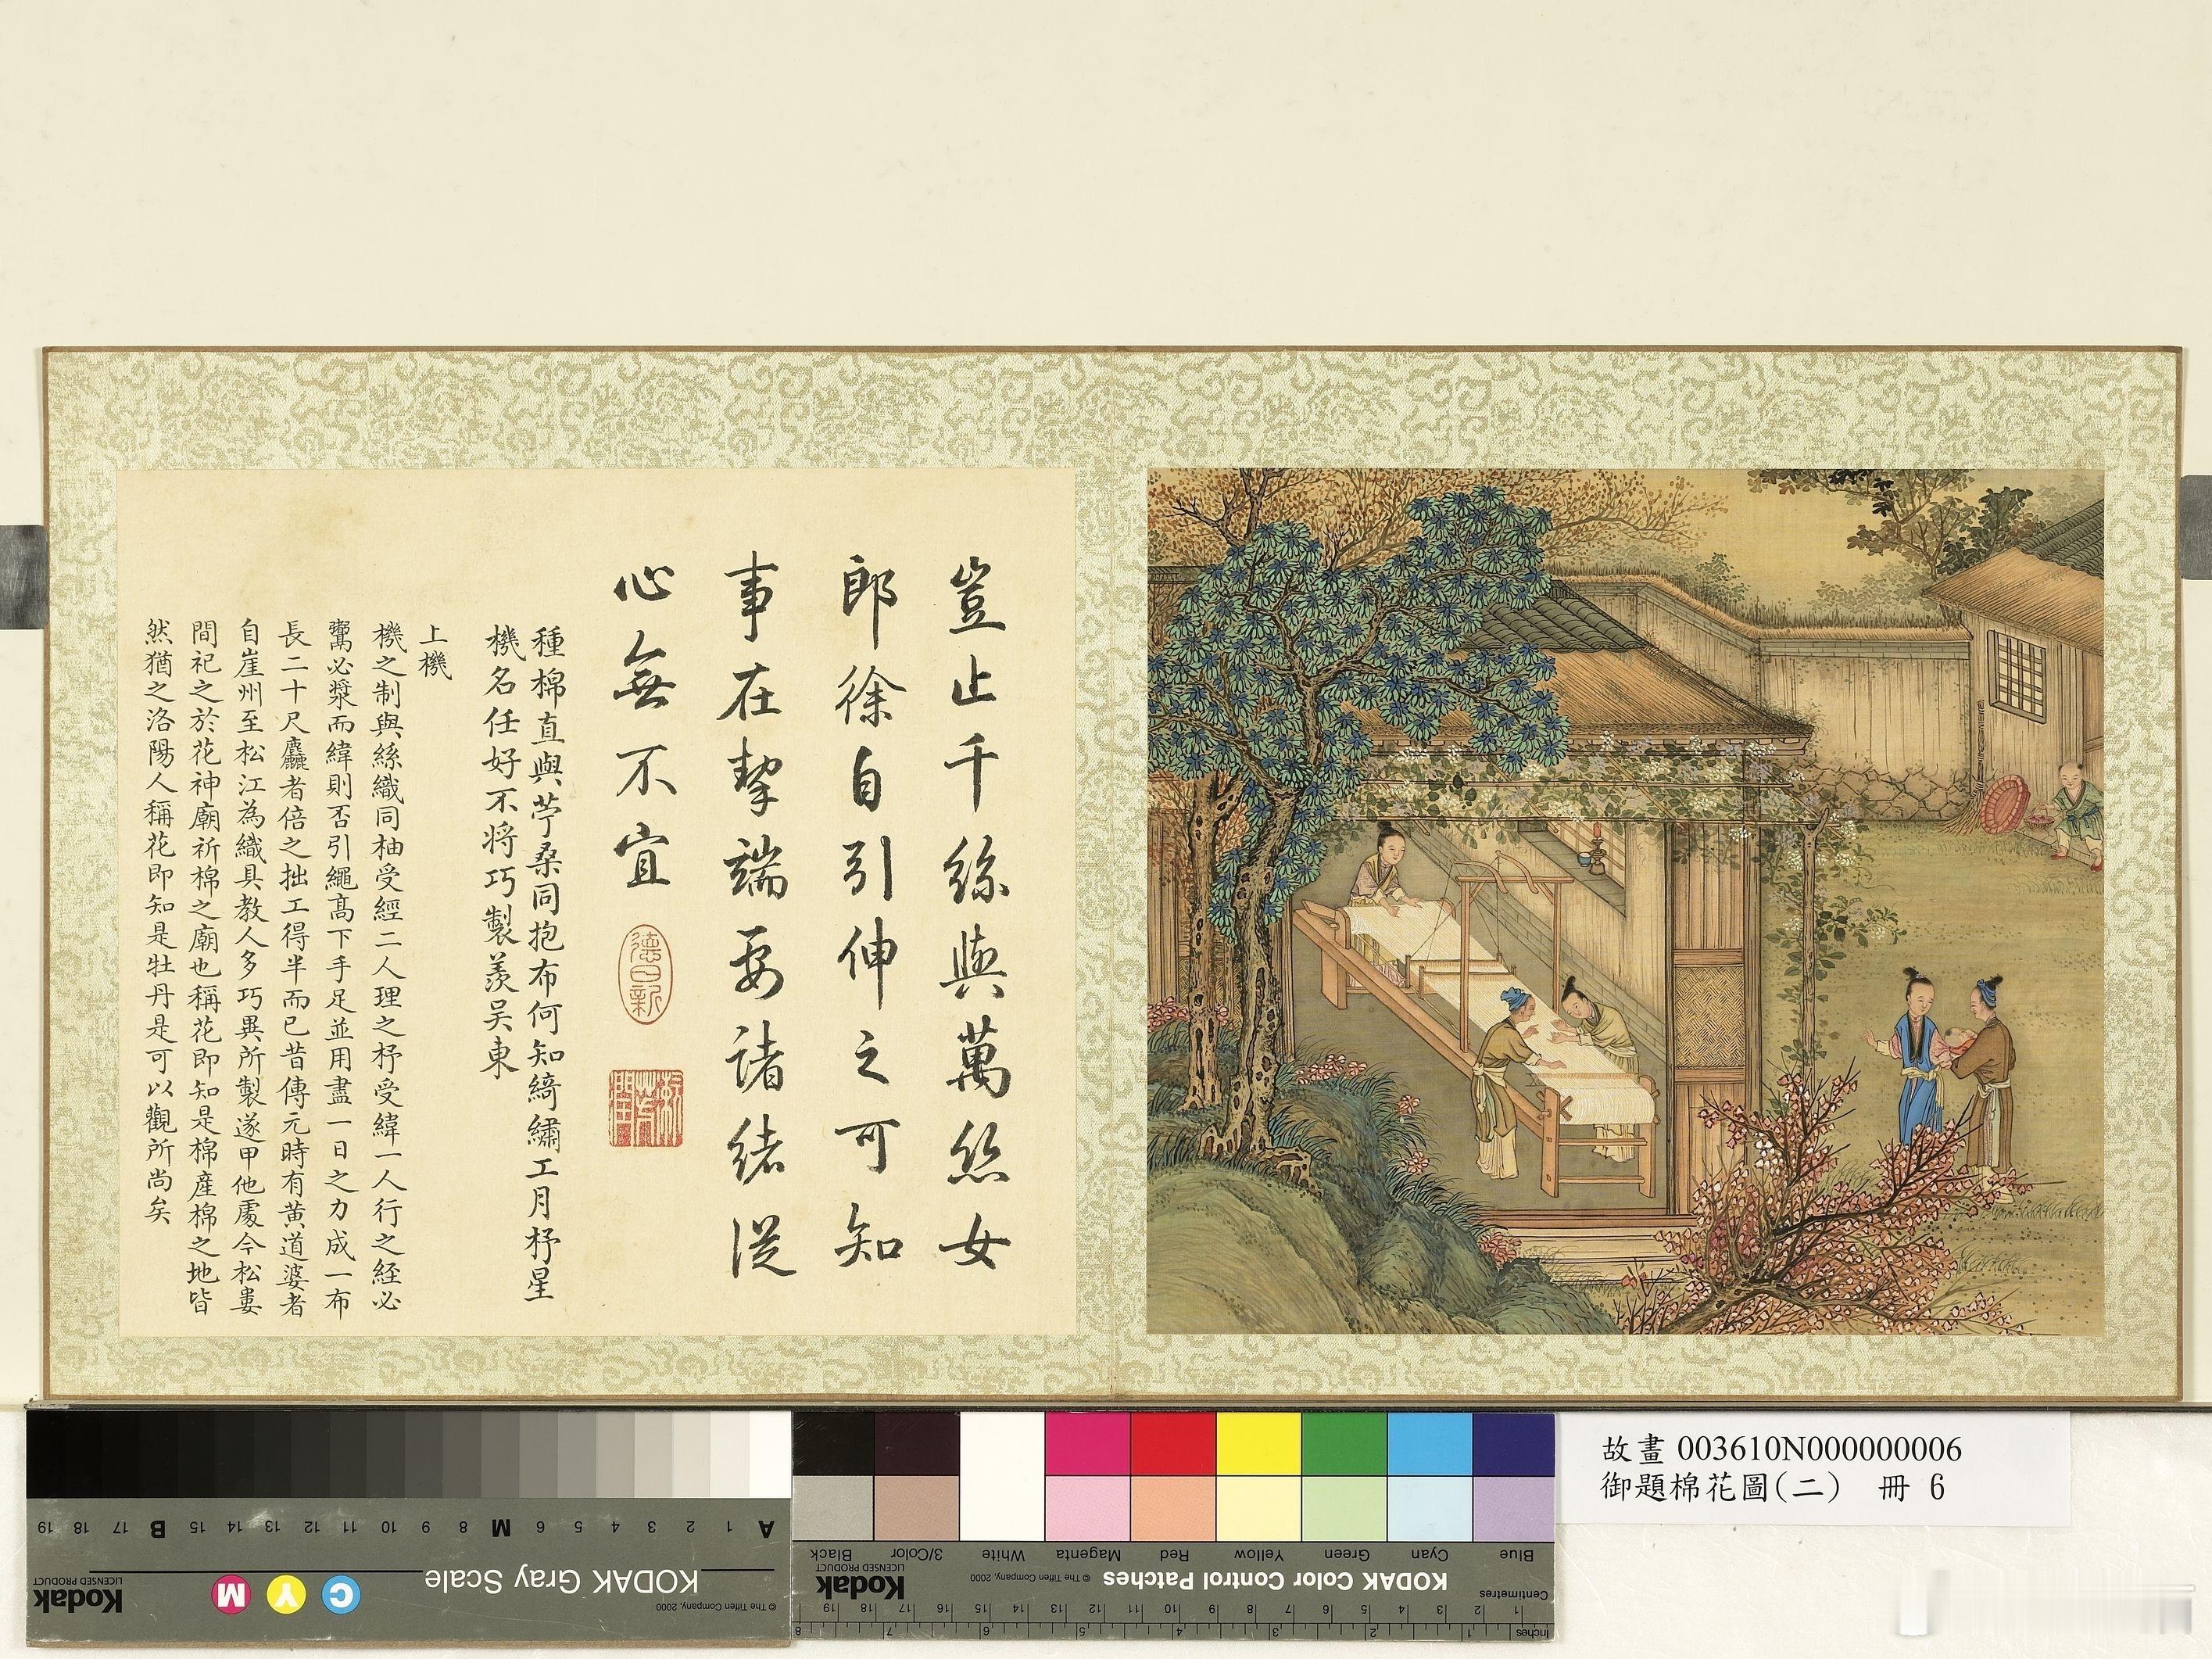 豈止千絲與萬絲女
郎徐自引伸之可知
事在挈端要諸緒從
心無不宜
德日新
漱芳潤
種棉直與苧桑同抱布何知綺繡工月杼星
機名任好不將巧製羨吳東
上機
機之制與絲織同柚受經二人理之杼受緯一人行之経必
鬻必漿而緯則否引繩髙下手足並用盡一日之力成一布
長二十尺麤者倍之拙工得半而已昔傳元時有黃道婆者
自崖州至松江為織具教人多巧異所製遂甲他處今松婁
間祀之於花神廟祈棉之廟也稱花即知是棉產棉之地皆
然猶之洛陽人稱花即知是牡丹是可以觀所尚矣
故畫 003610N000000006
御題棉花圖(二) 冊 6
KODAK Gray Scale
A 1 2 3 4 5 6 M 8 9 10 11 12 13 14 15 B 17 18 19
C Y M
Kodak
LICENSED PRODUCT
© The Tiffen Company, 2000
KODAK Color Control Patches
© The Tiffen Company, 2000
Kodak
LICENSED PRODUCT
Blue Cyan Green Yellow Red Magenta White 3/Color Black
Centimetres
1 2 3 4 5 6 7 8 9 10 11 12 13 14 15 16 17 18 19
Inches
1 2 3 4 5 6 7 8